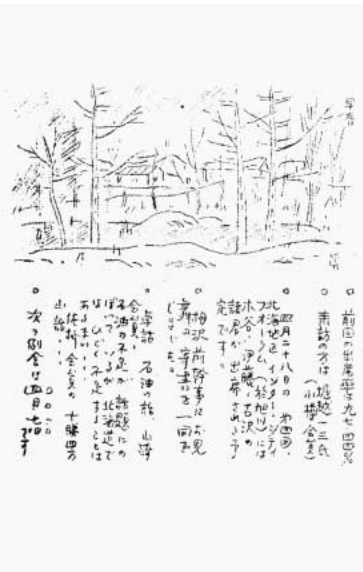 前回の出席率は九七.四四%
来訪の方は 堀越一三氏
(小樽会員)
四月二十八日の 第四回.
北海地区インター.シティ
フォーラム(於旭川)には
水谷、伊藤、古沢の
諸君が出席される予
定です。
相沢前幹事にお見
舞の寄書を一同で
しました。
卓話 石油の話 山
会員、
石油の不足が話題にの
ぼっているが、北海道で
はひどく不足することは
あるまい。
会員の 十勝四方
山話。
次の例会は四月七日
です